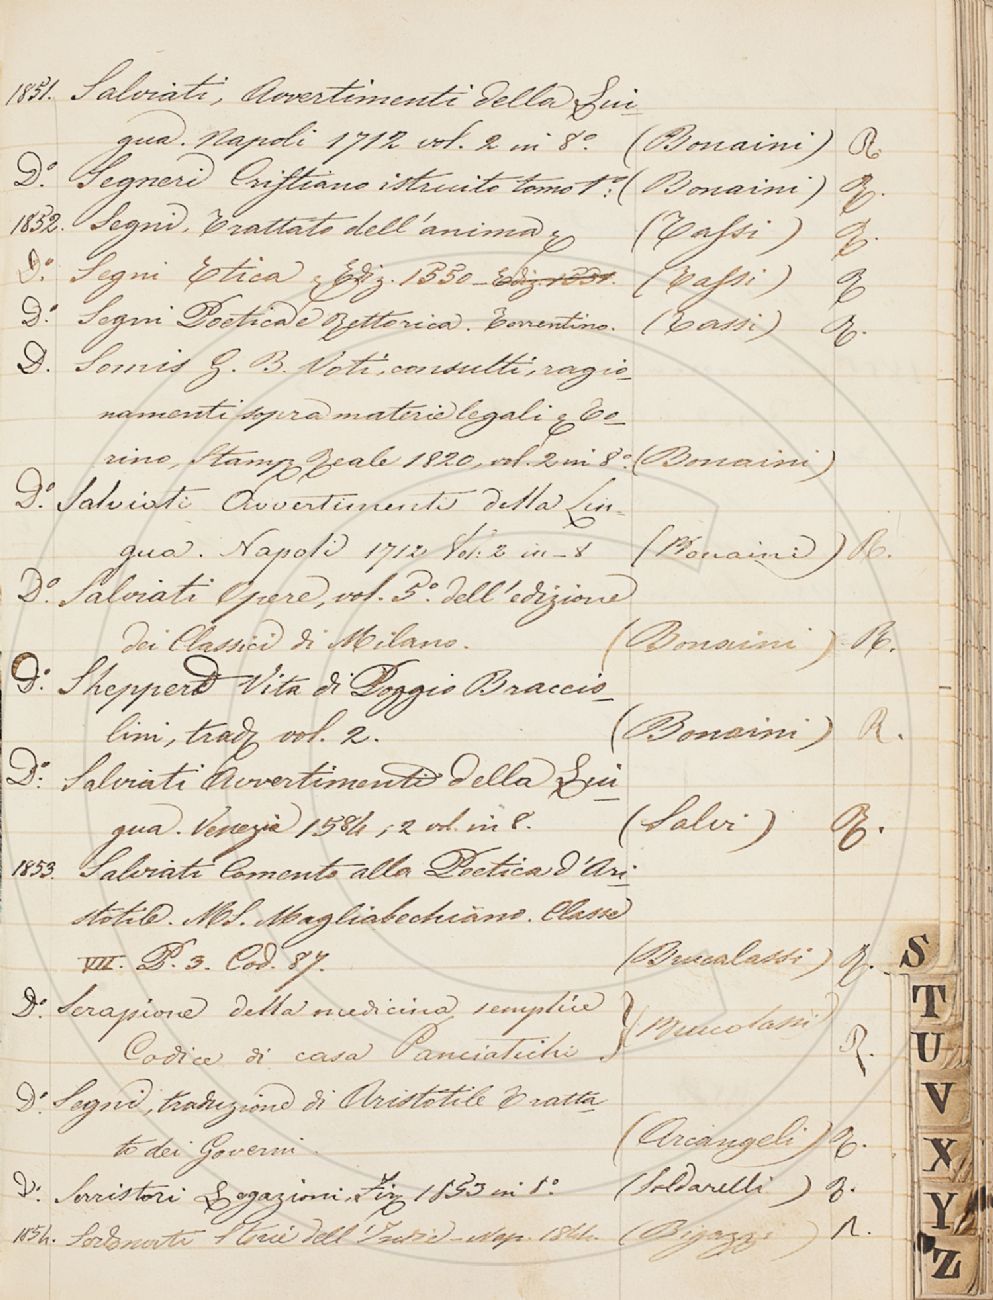 1851. Salviati, Avvertimenti della Lin-
gua. Napoli 1712 vol. 2 in 8.º (Bonaini) R.
Dº. Segneri Cristiano istruito tomo 1º. (Bonaini) R.
1852. Segni, Trattato dell'anima (Tassi) R.
Dº. Segni Etica, Ediz. 1550 - Ediz. 1551. (Tassi) R
Dº. Segni Poetica e Rettorica. Torrentino. (Tassi) R.
D. Somis G. B. Voti, consulti, ragio-
namenti sopra materie legali, To-
rino, Stamp Reale 1820, vol. 2 in 8º. (Bonaini)
Dº. Salviati Avvertimenti della Lin-
gua. Napoli 1712 Vol: 2 in - 8 (Bonaini) R.
Dº. Salviati Opere, vol. 5º. dell'edizione
dei Classici di Milano. (Bonaini) R.
Dº. Shepperd Vita di Poggio Braccio-
lini, trad vol. 2. (Bonaini) R.
Dº. Salviati Avvertimenti della Lin
gua. Venezia 1584, 2 vol. in 8. (Salvi) R.
1853. Salviati Comento alla Poetica d'Ari-
stotile. MS. Magliabechiano. Classe
VII. P. 3. Cod. 87. (Brucalassi) R.
Dº. Serapione della medicina semplice
Codice di casa Panciatichi } (Brucolassi) R.
Dº. Segni, traduzione di Aristotile Tratta-
to dei Governi. (Arcangeli) R.
Dº. Serristori Legazioni, Fir 1853 in 8º. (Soldarelli) R.
1854. Storie dell' Nap. 1844. (Bigazzi) R.
S
T
U
V
X
Y
Z